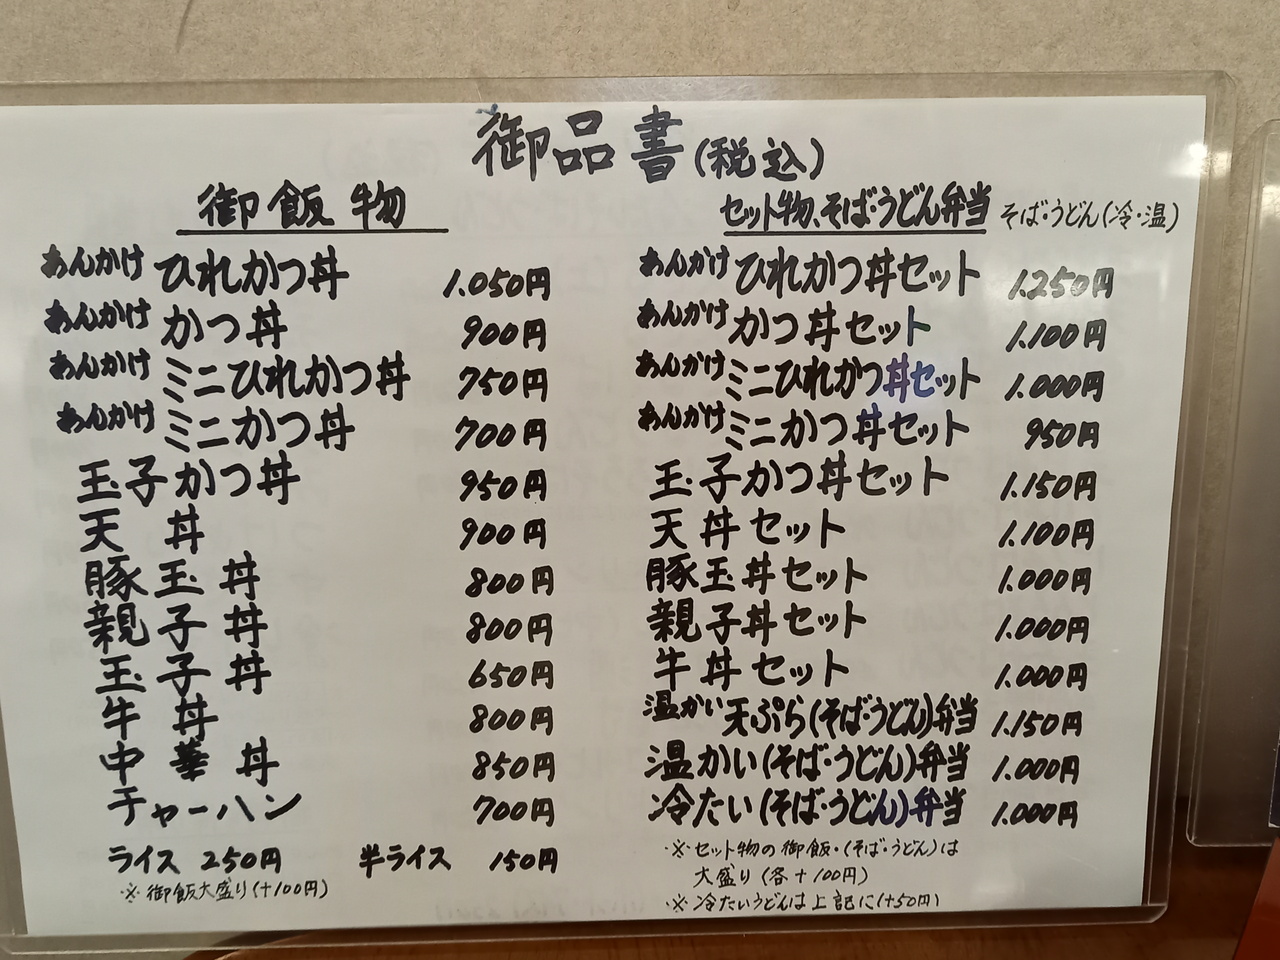 御品書(税込)
御飯物
あんかけ ひれかつ丼 1.050円
あんかけ かつ丼 900円
あんかけ ミニひれかつ丼 750円
あんかけ ミニかつ丼 700円
玉子かつ丼 950円
天丼 900円
豚玉丼 800円
親子丼 800円
玉子丼 650円
牛丼 800円
中華丼 850円
チャーハン 700円
ライス 250円 半ライス 150円
※御飯大盛り(+100円)
セット物、そば・うどん弁当 そば・うどん(冷・温)
あんかけ ひれかつ丼セット 1.250円
あんかけ かつ丼セット 1.100円
あんかけ ミニひれかつ丼セット 1.000円
あんかけ ミニかつ丼セット 950円
玉子かつ丼セット 1.150円
天丼セット 1.100円
豚玉丼セット 1.000円
親子丼セット 1.000円
牛丼セット 1.000円
温かい天ぷら(そば・うどん)弁当 1.150円
温かい(そば・うどん)弁当 1.000円
冷たい(そば・うどん)弁当 1.000円
※セット物の御飯・(そば・うどん)は
大盛り(各+100円)
※冷たいうどんは上記に(+50円)